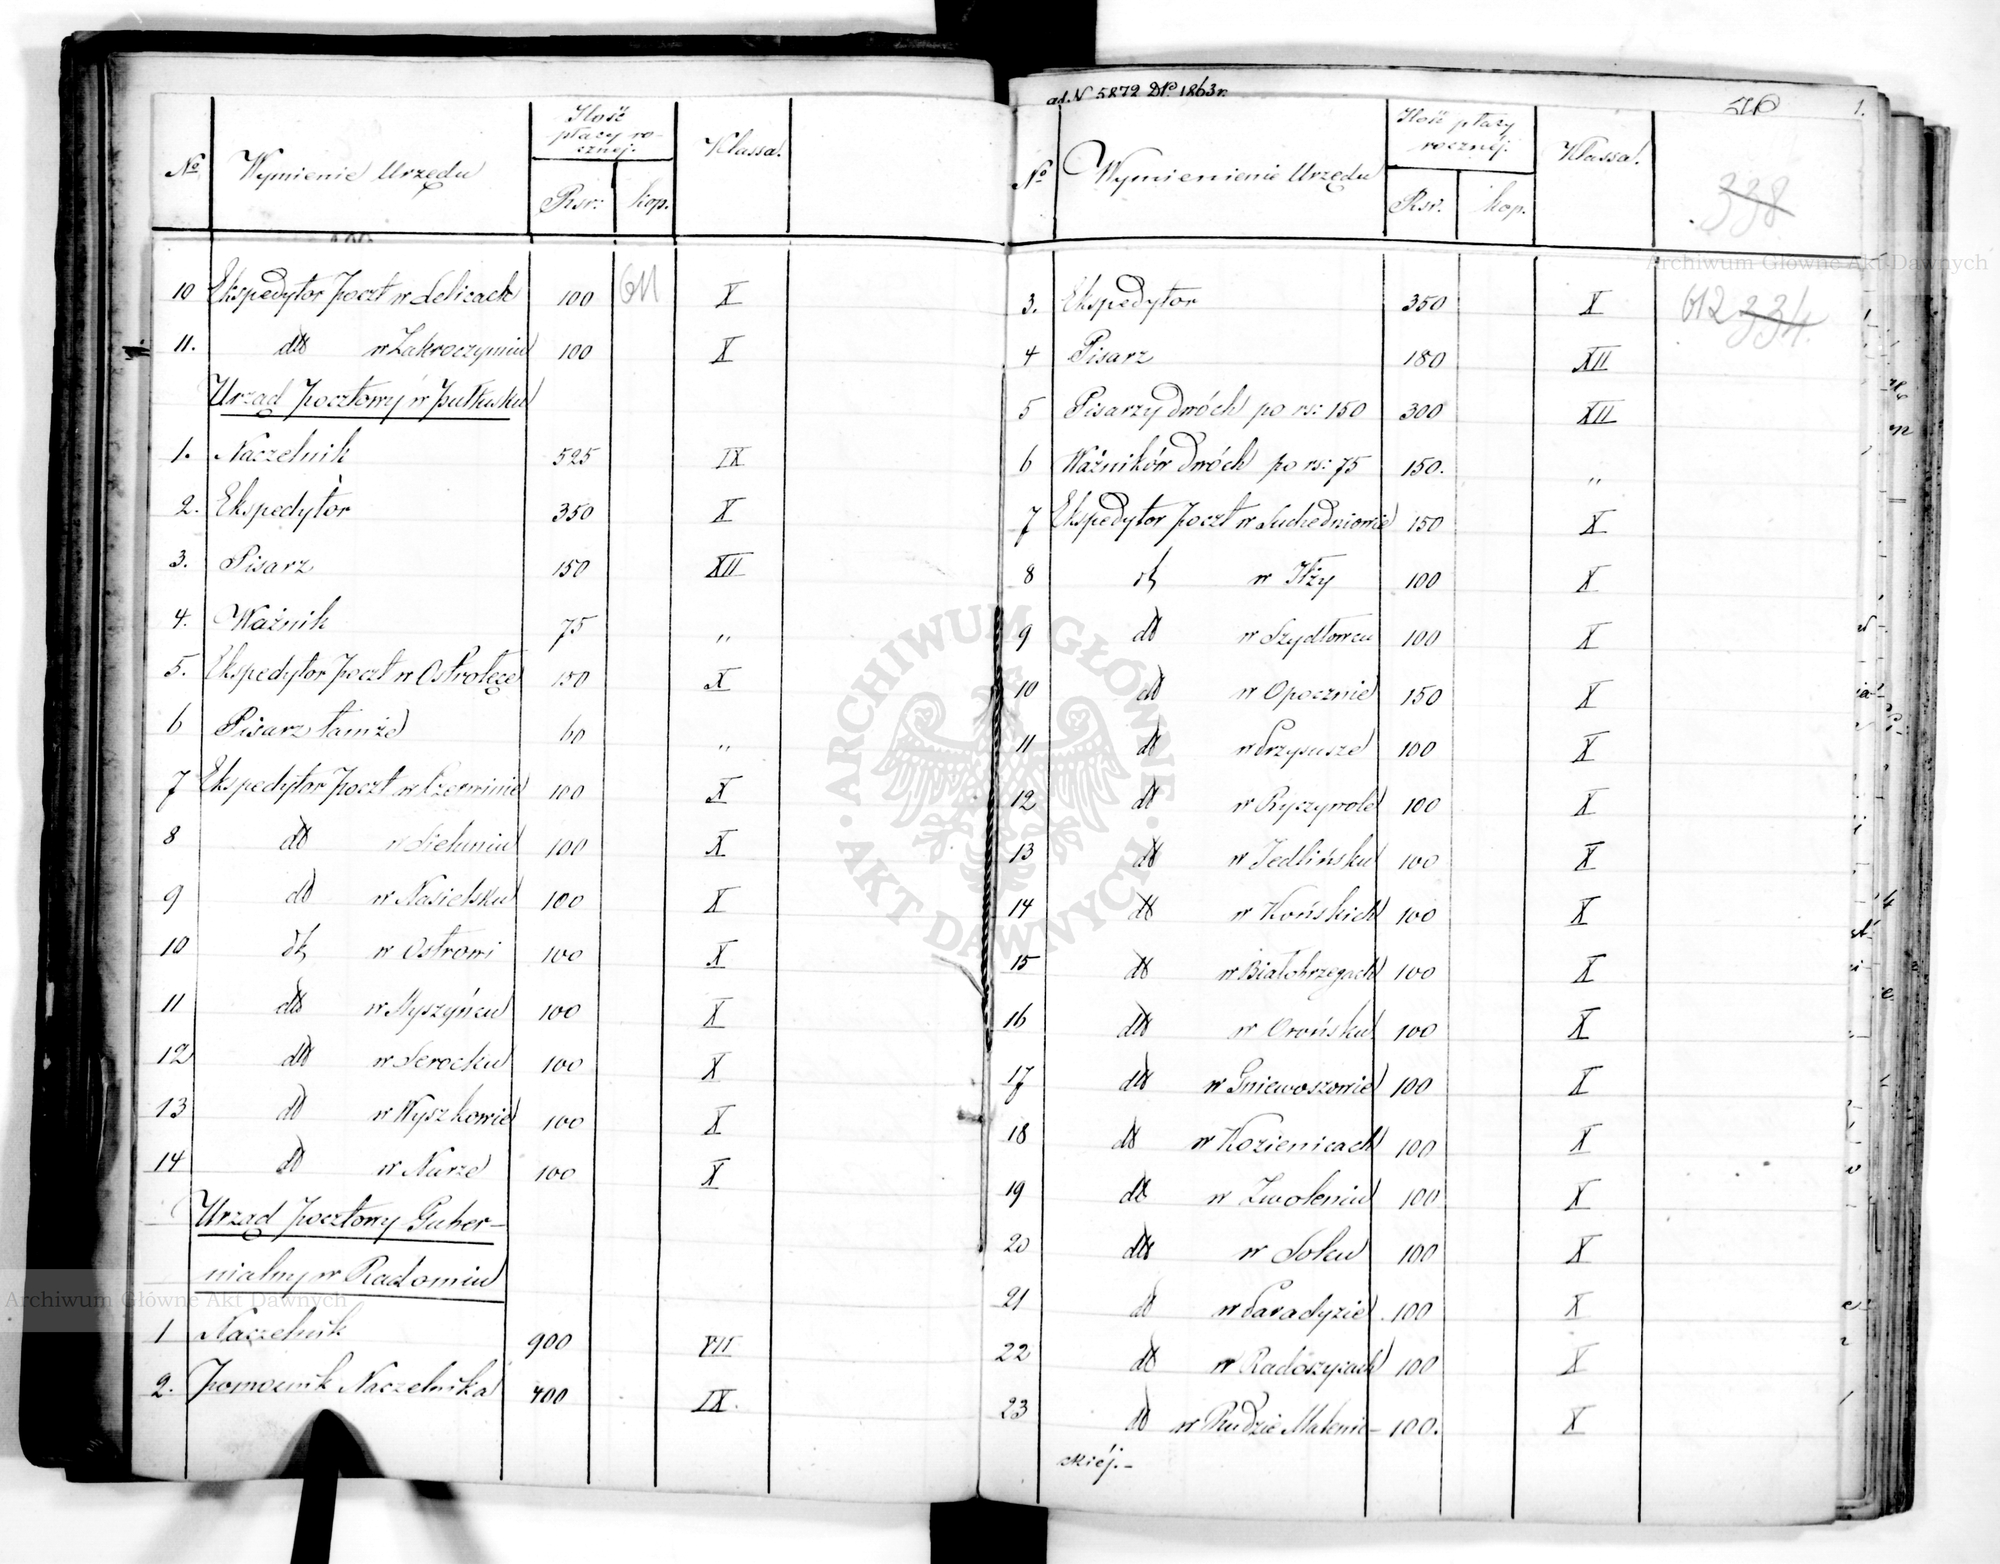 No Wymienienie Urzędu Ilość płacy rocznej. Rsr: kop. Klassa.
10 Ekspedytor poczt w Selicach 100 611 X
11. dto w Zakroczymiu 100 X
Urząd pocztowy w Pułtusku
1. Naczelnik 525 IX
2. Ekspedytor 350 X
3. Pisarz 150 XII
4. Ważnik 75 „
5. Ekspedytor poczt w Ostrołęce 150 X
6 Pisarz tamże 60 „
7 Ekspedytor poczt w Czerwinie 100 X
8 dto w Sieluniu 100 X
9 do w Nasielsku 100 X
10 dto w Ostrowi 100 X
11 dto w Myszyńcu 100 X
12 dto w Serocku 100 X
13 do w Wyszkowie 100 X
14 do w Nurze 100 X
Urząd pocztowy Guber-
nialny w Radomiu
1 Naczelnik 900 VII
2. Pomocnik Naczelnika 400 IX.
ad N 5872 DP. 1863 r.
1.
No Wymienienie Urzędu Ilość płacy rocznéj. Rsr. kop. Klassa.
338
3. Ekspedytor 350 X 612 334.
4 Pisarz 180 XII
5 Pisarzy dwóch po rs: 150 300 XII
6 Ważników dwóch po rs: 75 150. „
7 Ekspedytor poczt w Suchedniowie 150 X
8 dto w Iłży 100 X
9 do w Szydłowcu 100 X
10 do w Opocznie 150 X
11 do w Przysusze 100 X
12 do w Ryczywole 100 X
13 do w Jedlińsku 100 X
14 dto w Końskich 100 X
15 do w Białobrzegach 100 X
16 dto w Orońsku 100 X
17 dto w Gniewoszowie 100 X
18 do w Kozienicach 100 X
19 do w Zwoleniu 100 X
20 dto w Solcu 100 X
21 do w Paradyzie 100 X
22 do w Radoszycach 100 X
23 do w Rudzie Malenie- 100. X
ckiéj.-
Archiwum Główne Akt Dawnych
ARCHIWUM GŁÓWNE · AKT DAWNYCH ·
Archiwum Główne Akt Dawnych